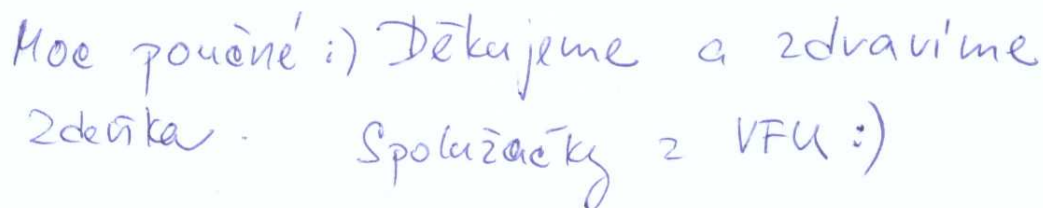 Moc poučné :) Děkujeme a zdravíme
Zdeňka. Spolužačky z VFU :)